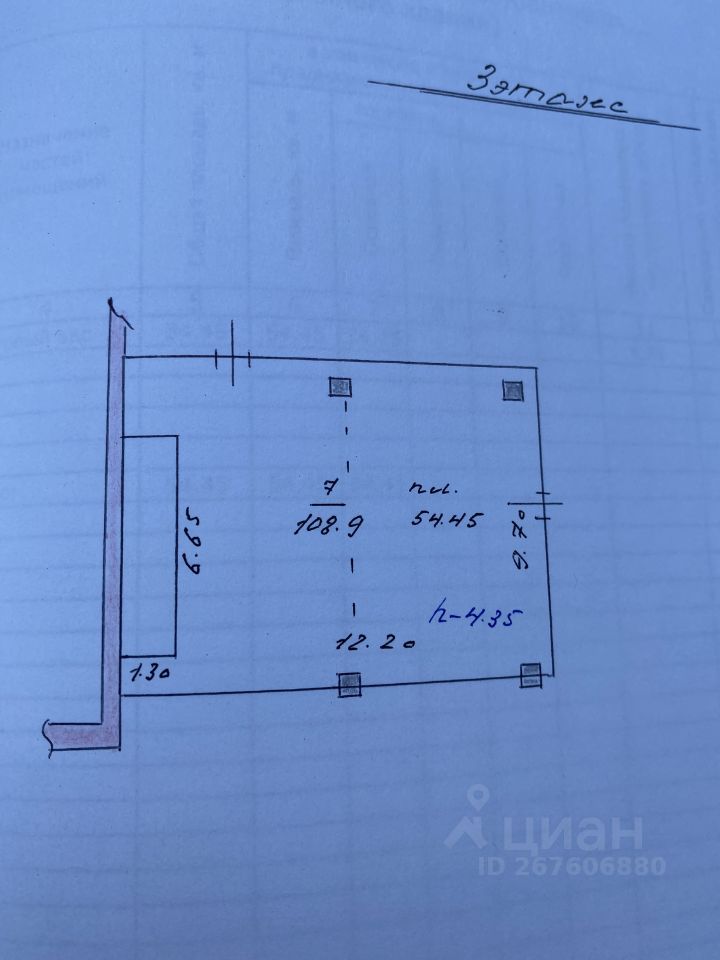 3 этаж
7
108.9
пл.
54.45
6.65
9.70
h-4.35
12.20
1.30
циан
ID 267606880